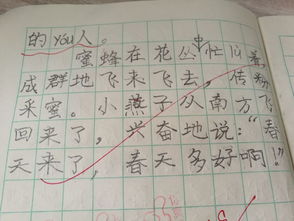 的 you 人。
蜜蜂在花丛中忙
成群地飞来飞去，传粉
采蜜。小燕子从南方飞
回来了，兴奋地说：“春
天来了，春天多好啊！”